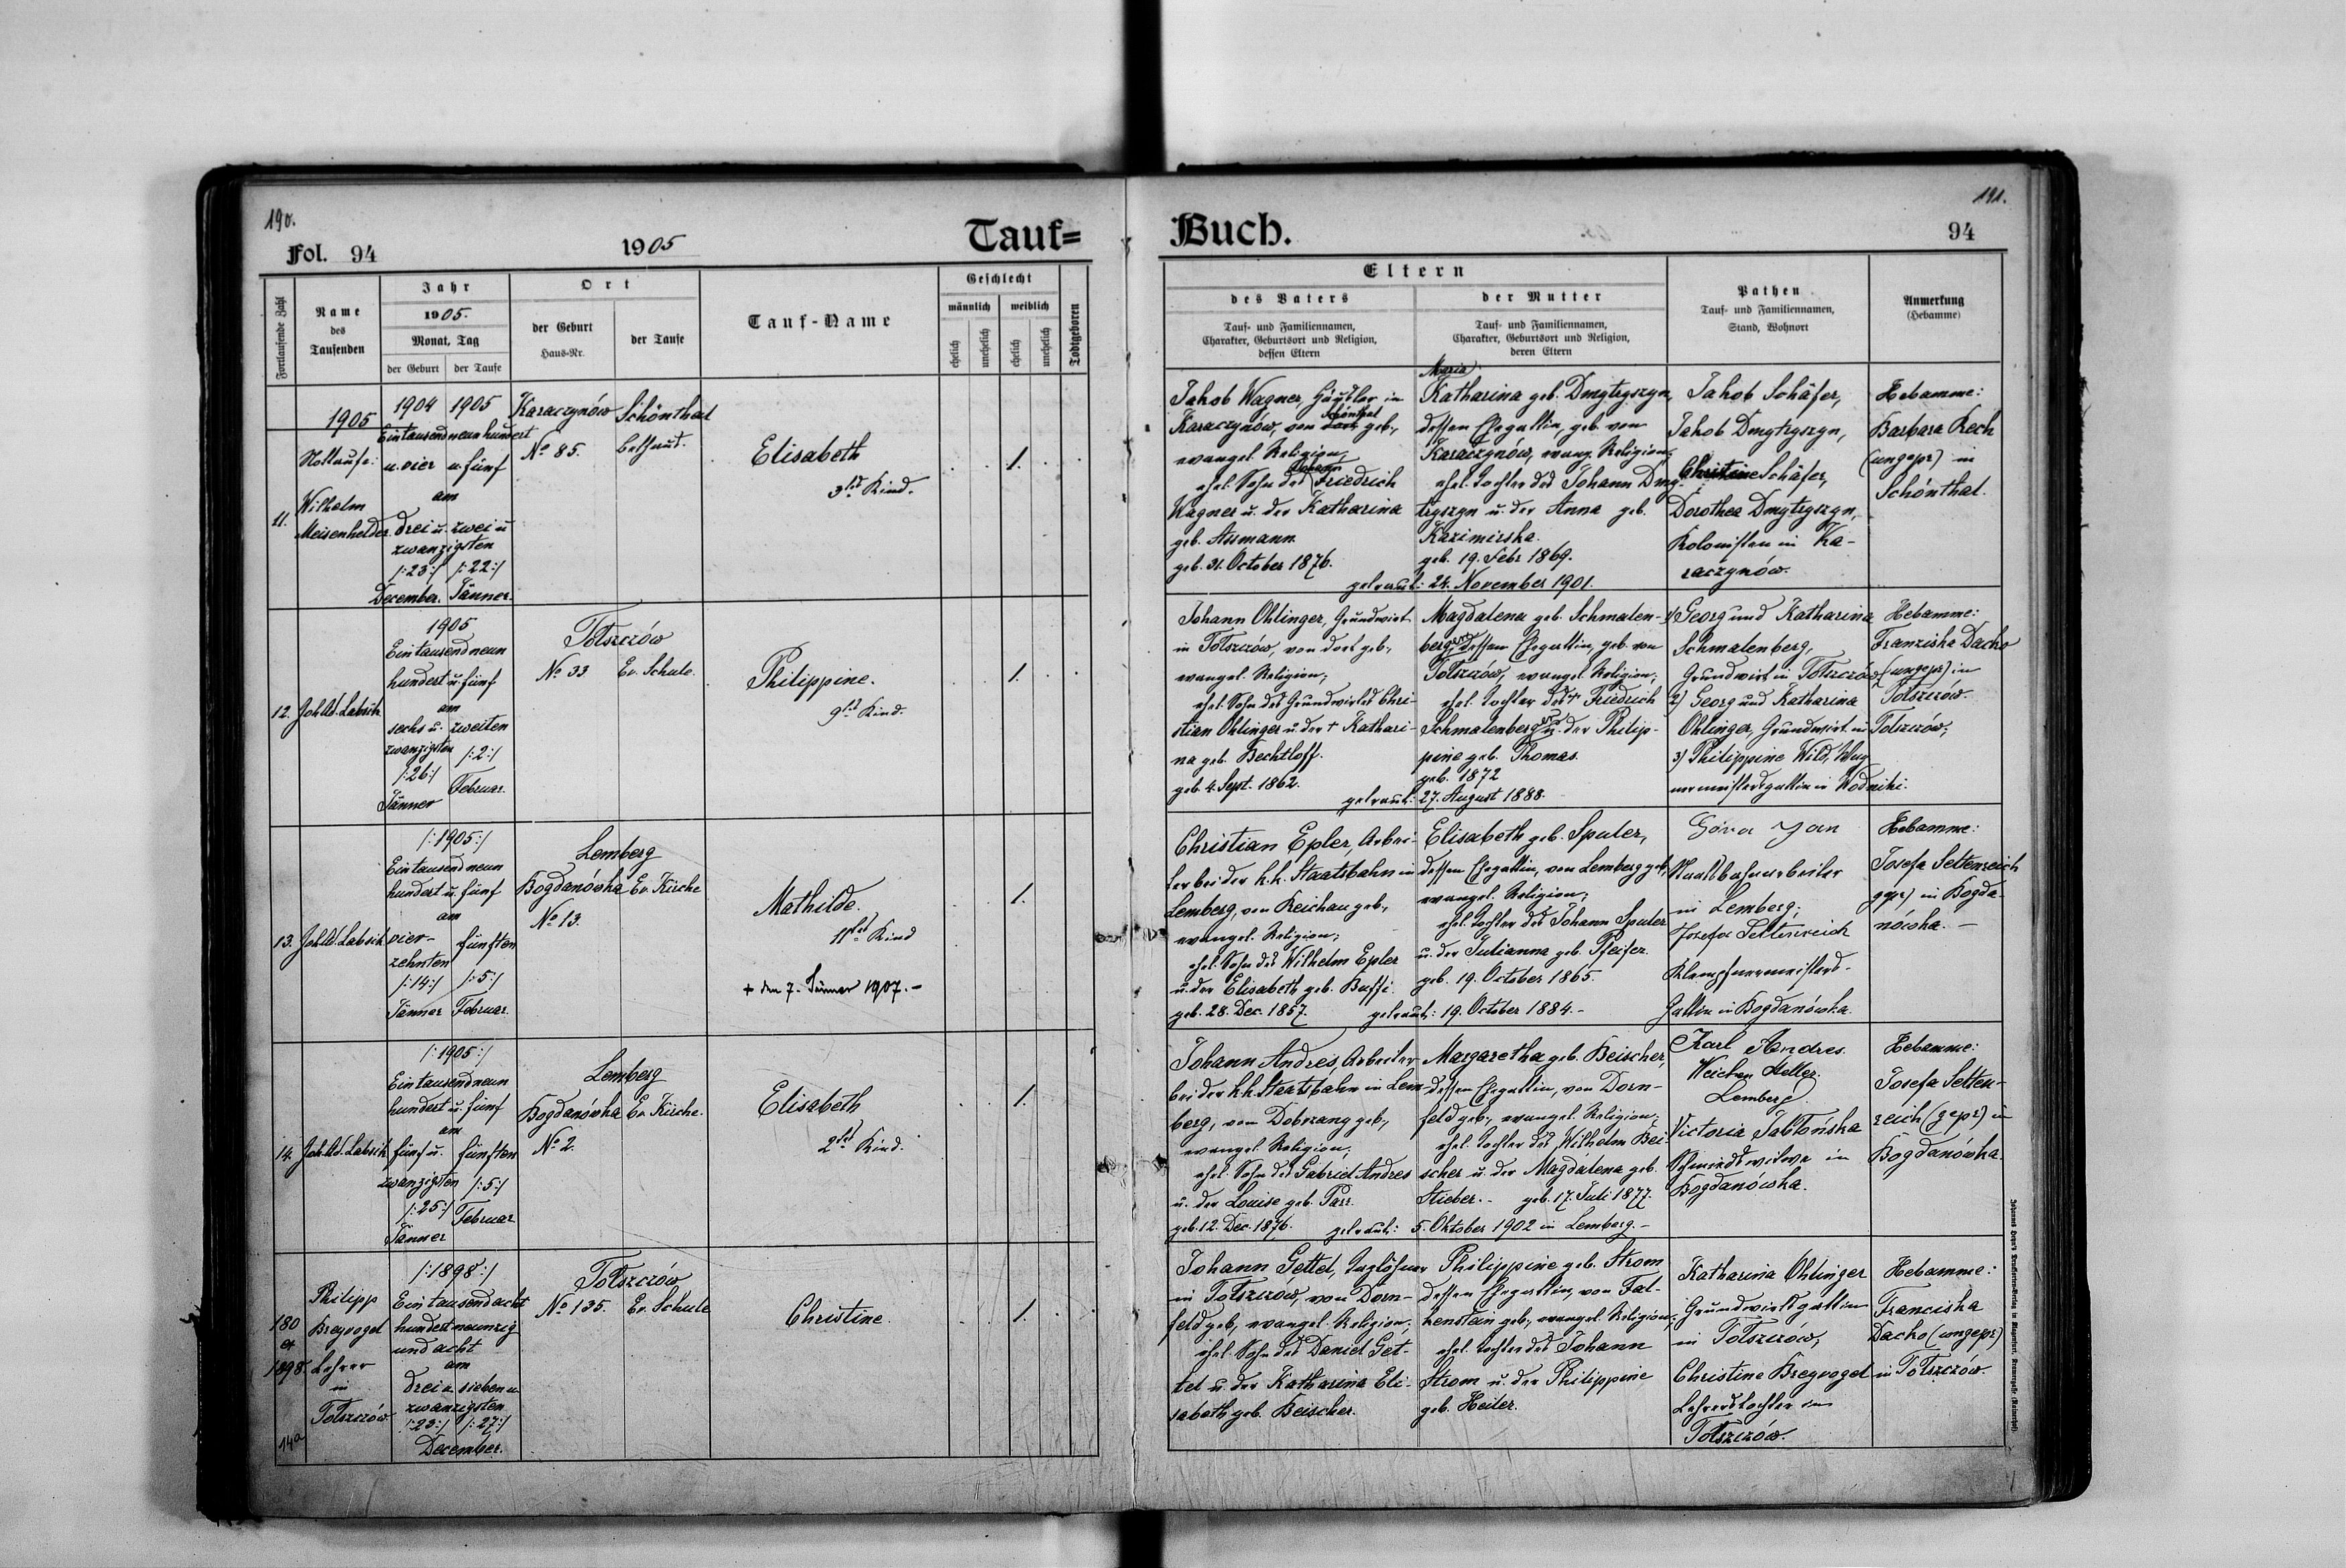 190.
Fol. 94
1905
Tauf=
Fortlaufende Zahl
Name
des
Taufenden
Jahr
1905.
Monat, Tag
der Geburt
der Taufe
Ort
der Geburt
Haus-Nr.
der Taufe
Tauf-Name
Geschlecht
männlich
weiblich
ehelich
unehelich
ehelich
unehelich
Todtgeboren
11.
1905
Nottaufe:
Wilhelm
Meisenhelder
1904 1905
Eintausendneunhundert
u. vier u. fünf
am
drei u. zwei u.
zwanzigsten
/:23:/ /:22:/
December. Jänner.
Karaczynów
No 85.
Schönthal
Bethaus.
Elisabeth
3tes Kind.
1.
12.
Joh. Ad. Labsik
1905
Eintausendneun
hundert u. fünf
am
sechs u. zweiten
zwanzigsten /:2:/
/:26:/
Jänner Februar.
Tołszczów
No 33 Ev. Schule.
Philippine.
9tes Kind.
1.
13.
Joh. Ad. Labsik
/:1905:/
Eintausendneun
hundert u. fünf
am
vier- fünften
zehnten
/:14:/ /:5:/
Jänner Februar.
Lemberg
Bogdanówka Ev. Kirche
No 13.
Mathilde.
11tes Kind
+ den 7. Jänner 1907.-
1.
14.
Joh. Ad. Labsik
/:1905:/
Eintausendneun
hundert u. fünf
am
fünf u. fünften
zwanzigsten /:5:/
/:25:/ Februar
Jänner
Lemberg
Bogdanówka Ev. Kirche.
No 2.
Elisabeth
2tes Kind.
1.
180
ex
1898.
14a
Philipp
Bregvogel
Lehrer
in
Tołszczów
/:1898:/
Eintausendacht
hundertneunzig
und acht
am
drei u. sieben u.
zwanzigsten
/:23:/ /:27:/
December.
Tołszczów
No 135. Ev. Schule
Christine.
1.
191.
Buch.
94
Eltern
des Vaters
Tauf- und Familiennamen,
Charakter, Geburtsort und Religion,
dessen Eltern
der Mutter
Tauf- und Familiennamen,
Charakter, Geburtsort und Religion,
deren Eltern
Pathen
Tauf- und Familiennamen,
Stand, Wohnort
Anmerkung
(Hebamme)
Jakob Wagner, Häusler in
Karaczynów, von dort Schönthal geb.,
evangel. Religion,
ehel. Sohn des Johann Friedrich
Wagner u. der Katharina
geb. Assmann.
geb. 31. October 1876.
Maria
Katharina geb. Dmytryszyn,
dessen Ehegattin, geb. von
Karaczynów, evang. Religion;
ehel. Tochter des Johann Dmy-
tryszyn u. der Anna geb.
Kazimirska.
geb. 19. Febr. 1869.
getraut: 24. November 1901.
Jakob Schäfer,
Jakob Dmytryszyn,
Christine Schäfer,
Dorothea Dmytryszyn,
Kolonisten in Ka-
raczynów.
Hebamme:
Barbara Rech
(ungepr) in
Schönthal.
Johann Ohlinger, Grundwirt
in Tołszczów, von dort geb.,
evangel. Religion;
ehel. Sohn des Grundwirtes Chri-
stian Ohlinger u. der + Kathari-
na geb. Bechtloff.
geb. 4. Sept. 1862.
Magdalena geb. Schmalen-
berg, dessen Ehegattin, geb. von
Tołszczów, evangel. Religion;
ehel. Tochter des + Friedrich
Schmalenberg u. der Philip-
pine geb. Thomas.
geb. 1872
getraut: 27. August 1888.
1) Georg und Katharina
Schmalenberg,
Grundwirt in Tołszczów
2) Georg und Katharina
Ohlinger, Grundwirt in Tołszczów;
3) Philippine Wild, Wag
nermeistersgattin in Wodniki.
Hebamme:
Franziska Dacho
(ungepr) in
Tołszczów.
Christian Epler, Arbei-
ter bei der k.k. Staatsbahn in
Lemberg, von Reichau geb.,
evangel. Religion;
ehel. Sohn des Wilhelm Epler
u. der Elisabeth geb. Buffi.
geb. 28. Dec. 1857.
Elisabeth geb. Sputer,
dessen Ehegattin, von Lemberg geb.,
evangel. Religion;
ehel. Tochter des Johann Sputer
u. der Julianna geb. Pfeifer.
geb. 19. October 1865.
getraut: 19. October 1884.-
Góra Jan
Staatsbahnarbeiter
in Lemberg;
Josefa Seltenreich
Klempfnermeisters-
Gattin in Bogdanówka.
Hebamme:
Josefa Seltenreich
gepr) in Bogda-
nówka. -
Johann Andres, Arbeiter
bei der k.k. Staatsbahn in Lem-
berg, von Dobrzang geb.,
evangel. Religion;
ehel. Sohn des Gabriel Andres
u. der Louise geb. Parr.
geb. 12. Dec. 1876.
Margaretha geb. Beischer,
dessen Ehegattin, von Dorn-
feld geb., evangel. Religion;
ehel. Tochter des Wilhelm Bei-
scher u. der Magdalena geb.
Stieber.- geb. 17. Juli 1877.
getraut: 5. Oktober 1902 in Lemberg.-
Karl Andres.
Weichen Steller.
Lemberg.
Victoria Jabłońska
Schmiedswitwe in
Bogdanówka.
Hebamme:
Josefa Selten-
reich (gepr) in
Bogdanówka.
Johann Gettel, Taglöhner
in Tołszczow, von Dorn-
feld geb., evangel. Religion;
ehel. Sohn des Daniel Get-
tel u. der Katharina Eli-
sabeth geb. Beischer.
Philippine geb. Strom
dessen Ehegattin, von Fal-
kenstein geb., evangel. Religion;
ehel. Tochter des Johann
Strom u. der Philippine
geb. Heiler.
Katharina Ohlinger
Grundwirtsgattin
in Tołszczów,
Christine Bregvogel
Lehrerstochter in
Tołszczów.
Hebamme:
Franciska
Dacho (ungepr)
in Tołszczów.